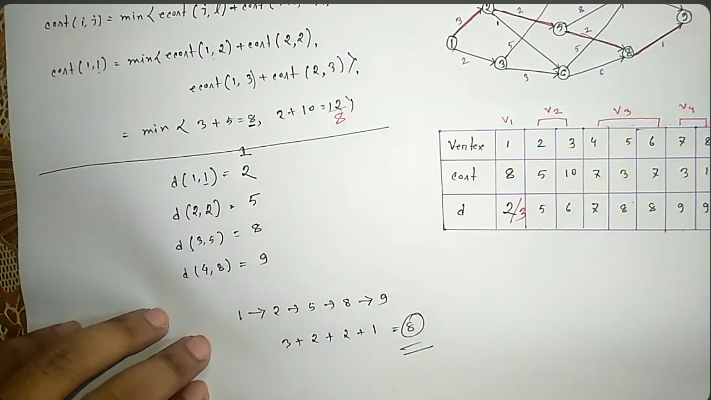 cost(i,j) = min{ ecost(j,l) + cost
cost(1,1) = min{ ecost(1,2) + cost(2,2),
ecost(1,3) + cost(2,3) },
= min { 3+5=8, 2+10=12 }
8
1
d(1,1) = 2
d(2,2) = 5
d(3,5) = 8
d(4,8) = 9
1 → 2 → 5 → 8 → 9
3 + 2 + 2 + 1 = 8
1 2 3 5 6 8 9
3 2 2 1 5 3 2 8 5 6 1
V1 V2 V3 V4
Vertex 1 2 3 4 5 6 7 8
cost 8 5 10 7 3 7 3 1
d 2/3 5 6 7 8 8 9 9